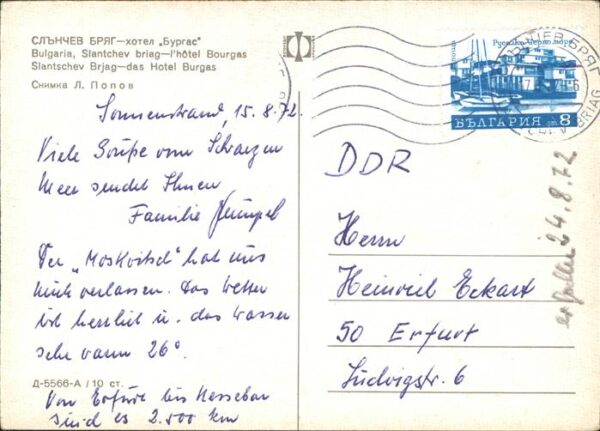 СЛЪНЧЕВ БРЯГ—хотел „Бургас"
Bulgaria, Slantchev briag—l'hôtel Bourgas
Slantschev Brjag—das Hotel Burgas
Снимка Л. Попов
Sonnenstrand, 15.8.72.
Viele Grüße vom Schwarzen
Meer sendet Ihnen
Familie
Der „Moskvitsch" hat uns
nicht verlassen. Das Wetter
ist herrlich u. das Wasser
sehr warm 26°.
Д-5566-А / 10 ст.
Von Erfurt bis Nessebar
sind es 2.500 km
БЪЛГАРИЯ 8
БРЯГ
BRIAG
DDR
Herrn
Heinrich Eckart
50 Erfurt
Ludwigstr. 6
erhalten 24.8.72